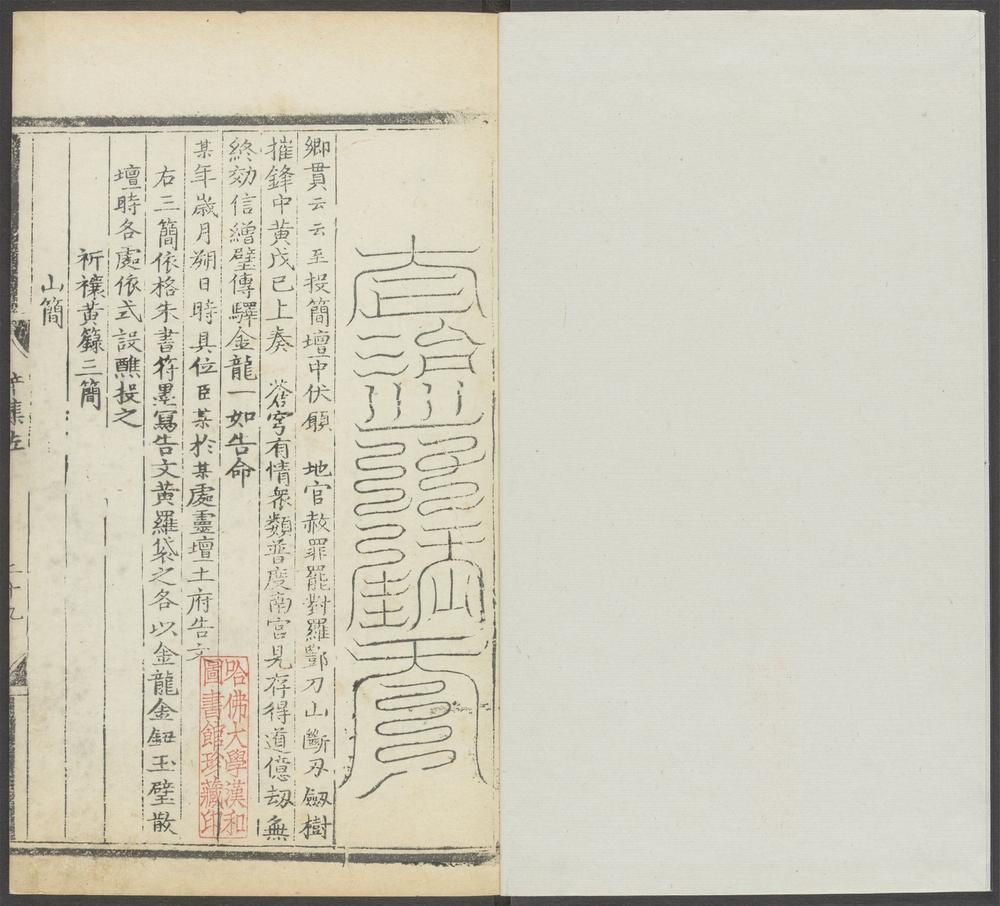 鄉貫云云至投簡壇中伏願　地官赦罪罷對羅酆刀山斷刃劔樹
摧鋒中黃戊已上奏　蒼穹有情衆類普度南宮見存得道億劫無
終効信繒璧傳驛金龍一如告命
某年歲月朔日時具位臣某於某處靈壇土府告文
右三簡依格朱書符墨寫告文黃羅袋之各以金龍金鈕玉璧散
壇時各處依式設醮投之
祈禳黃籙三簡
山簡
集左
二十九
哈佛大學漢和
圖書館珍藏印